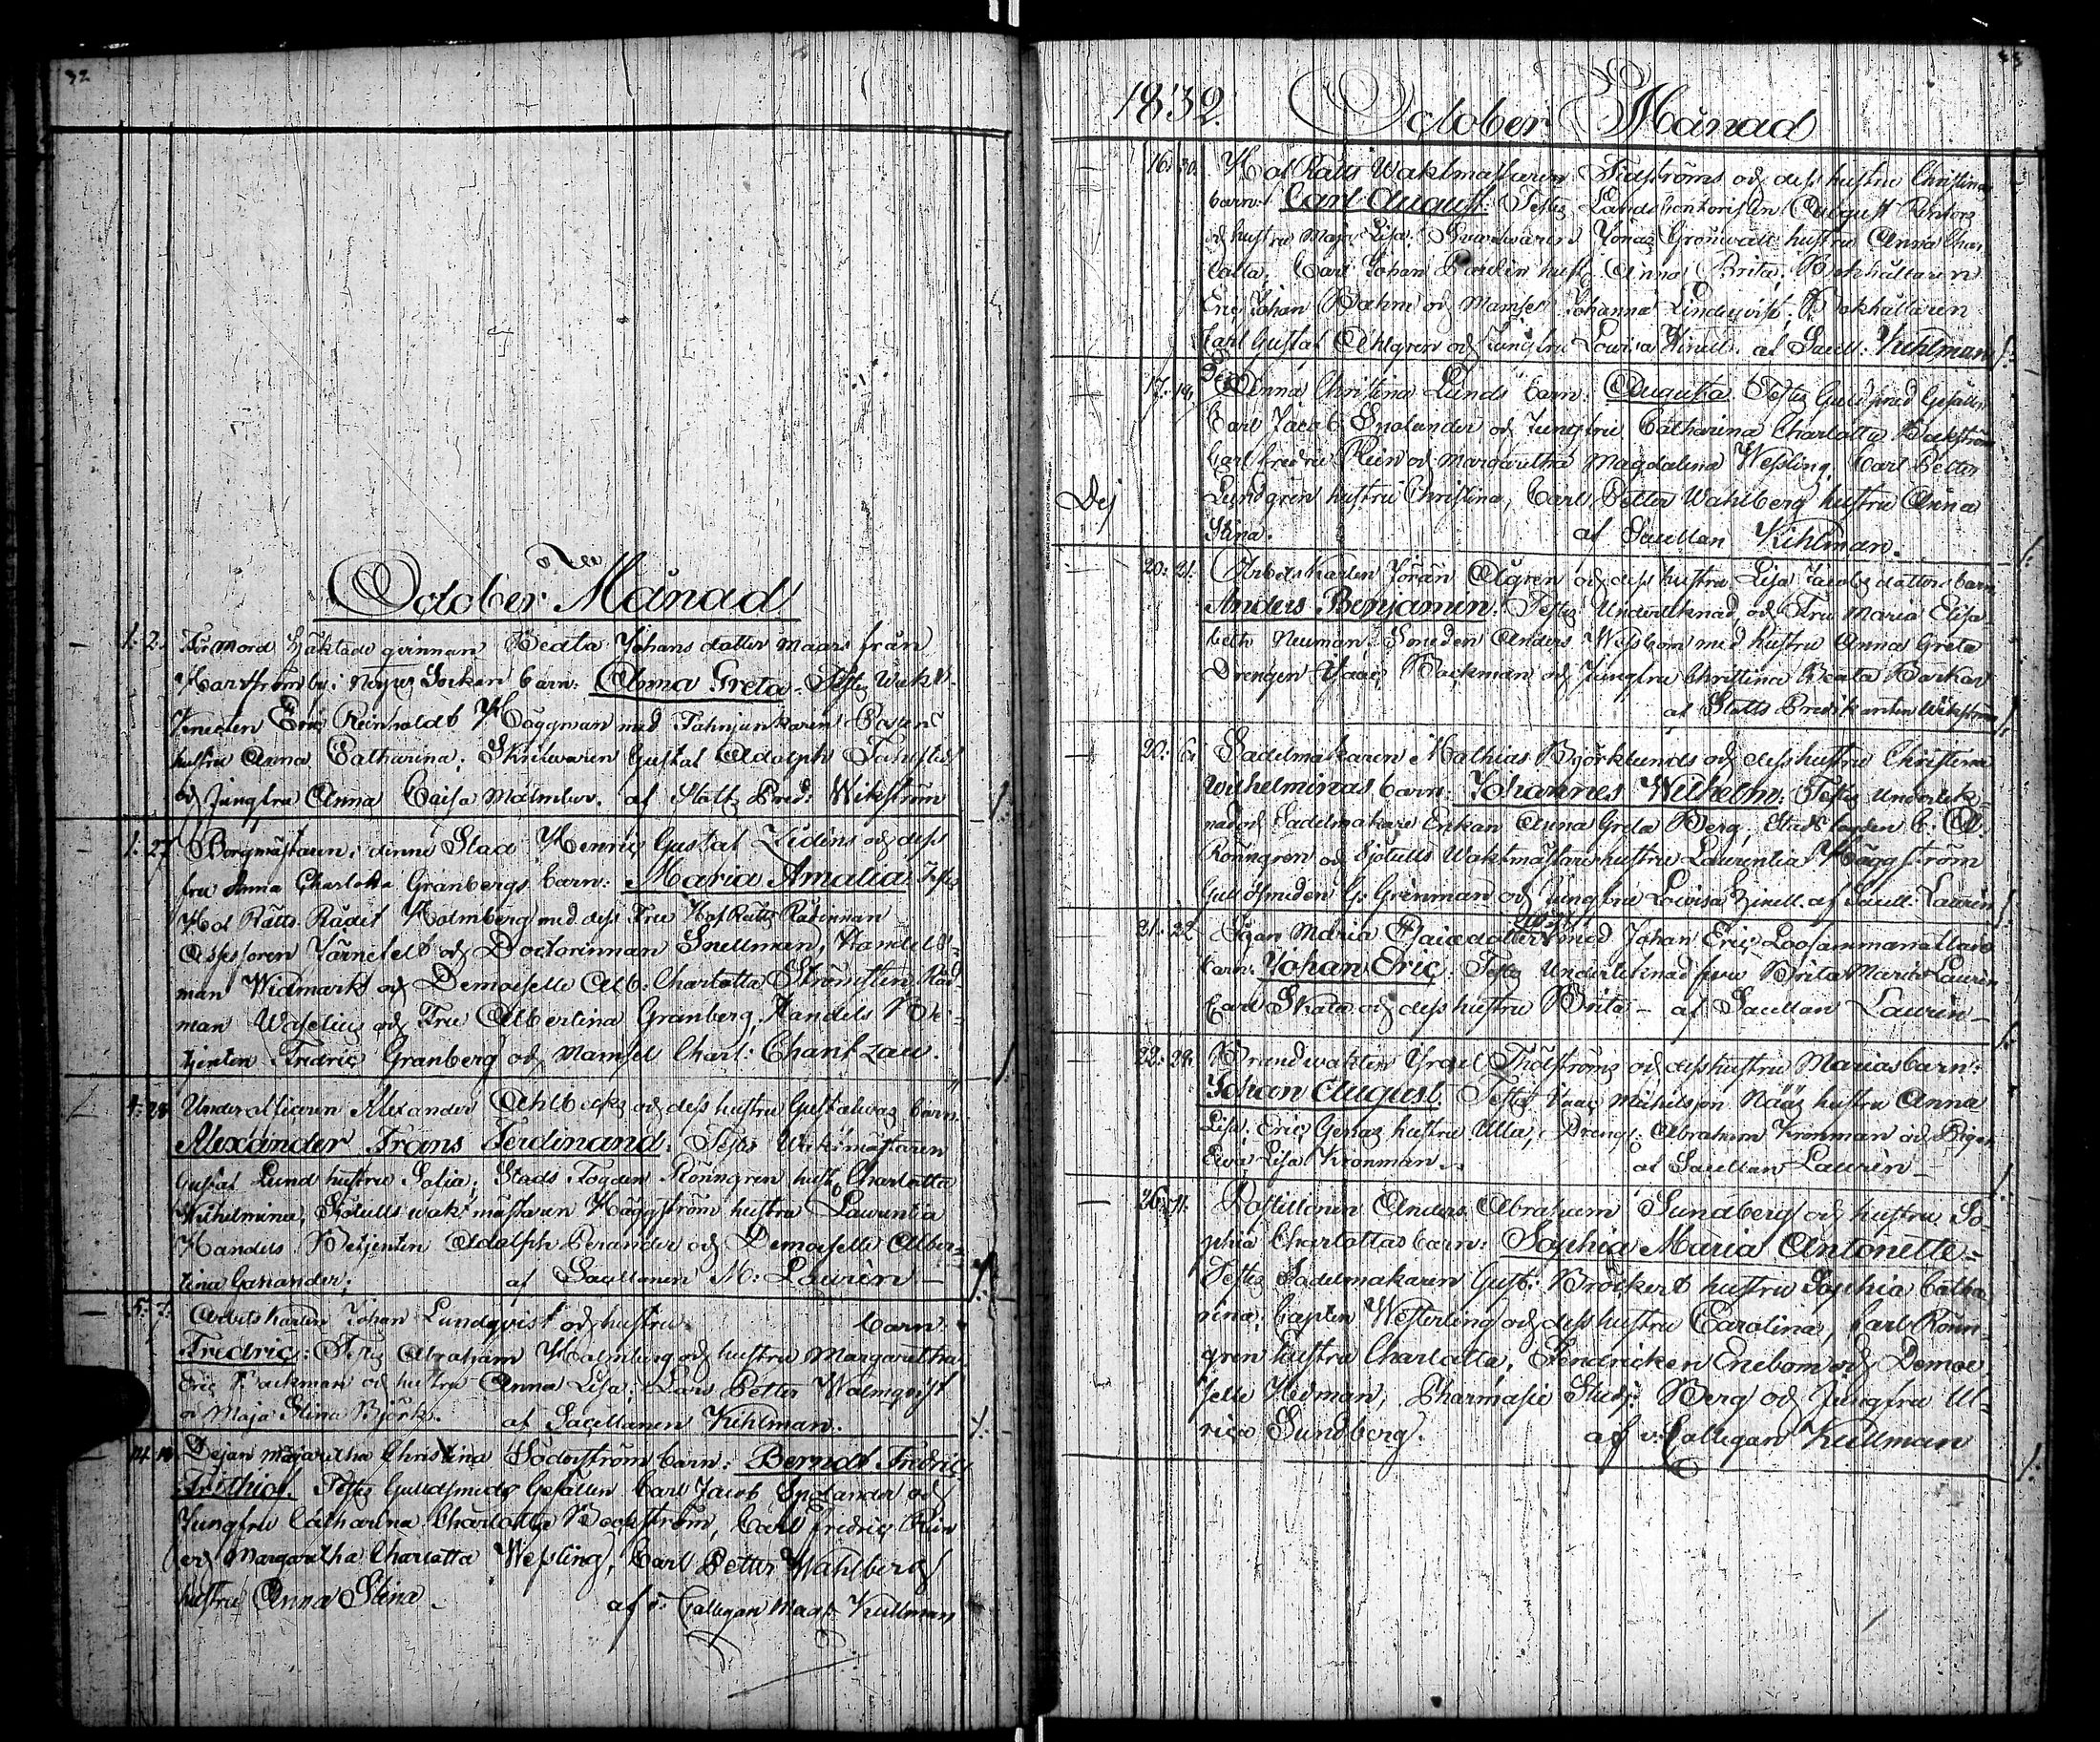 32
October Månad
1. 2. För mord häktade qvinnan Beata Johans dotter Maars från
Harström by i Socken barn: Anna Greta. Testes Wakt-
knecten Eric Reinholdt Häggman med Fahnjunkaren
hustru Anna Catharina, Skrifvaren Gustaf Adolph
och Jungfru Anna Caisa Malmber. af Slotts Pred: Wikström
1. 27 Borgmästaren i denne Stad Henric Gustaf Lidéns och dess
fru Anna Charlotta Granbergs barn: Maria Amalia. Testes
Hof Rätts Rådet Holmberg med dess Fru Hof Rätts Rådinnan
Assessoren Järnefelt och Doctorinnan Snellman, Handels-
man Widmark och Demoiselle Alb: Charlotta Strömsten Råd-
man Waselius och Fru Albertina Granberg, Handels Be-
tjenten Fredric Granberg och Mamsel Charl: Chant zau.
4. 28 Under officeren Alexander Ahlbecks och dess hustru Gustafvas barn.
Alexander Frans Ferdinand. Testes Wakmästaren
Gustaf Lund hustru Sofia; Stads Fogden Rönngren hust: Charlotta
Wilhelmina, Sjötulls wakt mästaren Häggström hustru Laurentia
Handels Betjenten Adolph Perander och Demoiselle Alber-
tina Ganander; af Sacellanen M: Laurèn -
5. 7. Arbetskarlen Johan Lundqvist och hustru barn
Fredric: Testes Abraham Holmberg och hustru Margaretha.
Eric Backman och hustru Anna Lisa; Lars Petter Walmqvist
o Maja Stina Björk. af Sacellanen Kihlman.
14. Pejan Margaretha Christina Söderström barn: Berndt Fredric
Frithiof. Testes Guldsmeds Gesällen Carl Jacob Englander och
Jungfru Catharina Charlotta Backström, Carl Fredric Rein
och Margaretha Charlotta Wessling, Carl Petter Wahlberg
hustru Anna Stina - af v: Callegan Mag: Kullman
33
1832. October Månad
16. 30. Hof Rätts Waktmästaren Tidströms och dess hustru Christinas
barn: Carl August: Testes Lands Contoristen August
och hustru Maja Lisa. Swarfwaren Jonas Grönwall hustru Anna Char
lotta, Carl Johan hust Anna Brita, Bokhållaren
Eric Johan Boehm och Mamsel Johanna Lindeqvist. Bokhållaren
Carl Gustaf Ahlgren och Jungfru Lowisa Hirell. af Sacell: Kihlman
17. 19. Anna Christina Lunds barn: Augusta Testes Guldsmed Gesällen
Carl Jacob Englander och Jungfru Catharina Charlotta Backström
Carl Fredric Rein och Margaretha Magdalena Wessling. Carl Petter
Dej Lundgren hustru Christina, Carl Petter Wahlberg hustru Anna
Stina. af Sacellan Kihlman.
20. 21. Arbetskarlen Jöran Ålgren och dess hustru Lisa Jacobs dotters barn,
Anders Benjamin. Testes Underteknad, och Fru Maria Elisa-
beth Neuman. Smeden Anders Wessbom med hustru Anna Greta
Drengen Isaac Backman och Jungfru Christina Beata Barkar
af Slotts Predikanten Wikström
20. 6. Sadelmakaren Mathias Björklunds och dess hustru Christina
Wilhelminas barn: Johannes Wilhelm. Testes Undertek-
nad och Sadelmakare Enkan Anna Greta Berg, Stads fogden C. A.
Rönngren och Sjötulls Waktmästare hustru Laurentia Häggström
Guldsmeden G: Grönman och Jungfru Lowisa Hirell. af Sacell. Laurèn
21. 22 Pigan Maria Isaicsdotter med Johan Eric Loosamman
barn: Johan Eric. Testes Undertecknad fru Brita Maria Laurèn
Carl Skata och dess hustru Brita - af Sacellan Laurèn -
22. 24. Brandwakten Israel Thölströms och dess hustru Marias barn:
Johan August. Testes Isaac Michelsson Nääs hustru Anna
Lisa. Eric Gerss hustru Ulla, Dreng: Abraham Kronman och Pigan
Ewa Lisa Kronman. af Sacellan Laurèn -
26. 31. Postillionen Anders Abraham Sundberg och hustru So-
phia Charlottas barn: Sophia Maria Antonette -
Testes Sadelmakaren Gust: Bröckert hustru Sophia Catha
rina, Capten Westerling och dess hustru Carolina, Carl Rönn-
gren hustru Charlotta, Fendricken Enebom och Demoi
selle Hedman, Pharmasie Stud: Berg och Jungfru Ul-
rica Sundberg. af v: Callegan Kullman